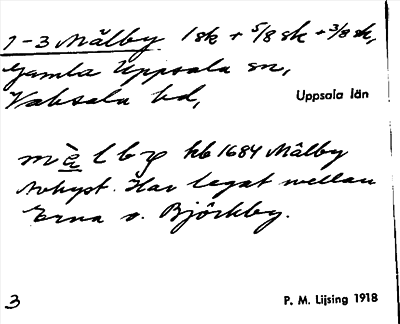 1-3 Målby 1 sk + 5/8 sk + 3/8 sk,
Gamla Uppsala sn,
Vaksala hd, Uppsala län
mὲlby kb 1684 Målby
Avhyst. Har legat mellan
Erna o. Björkby.
3 P. M. Lijsing 1918